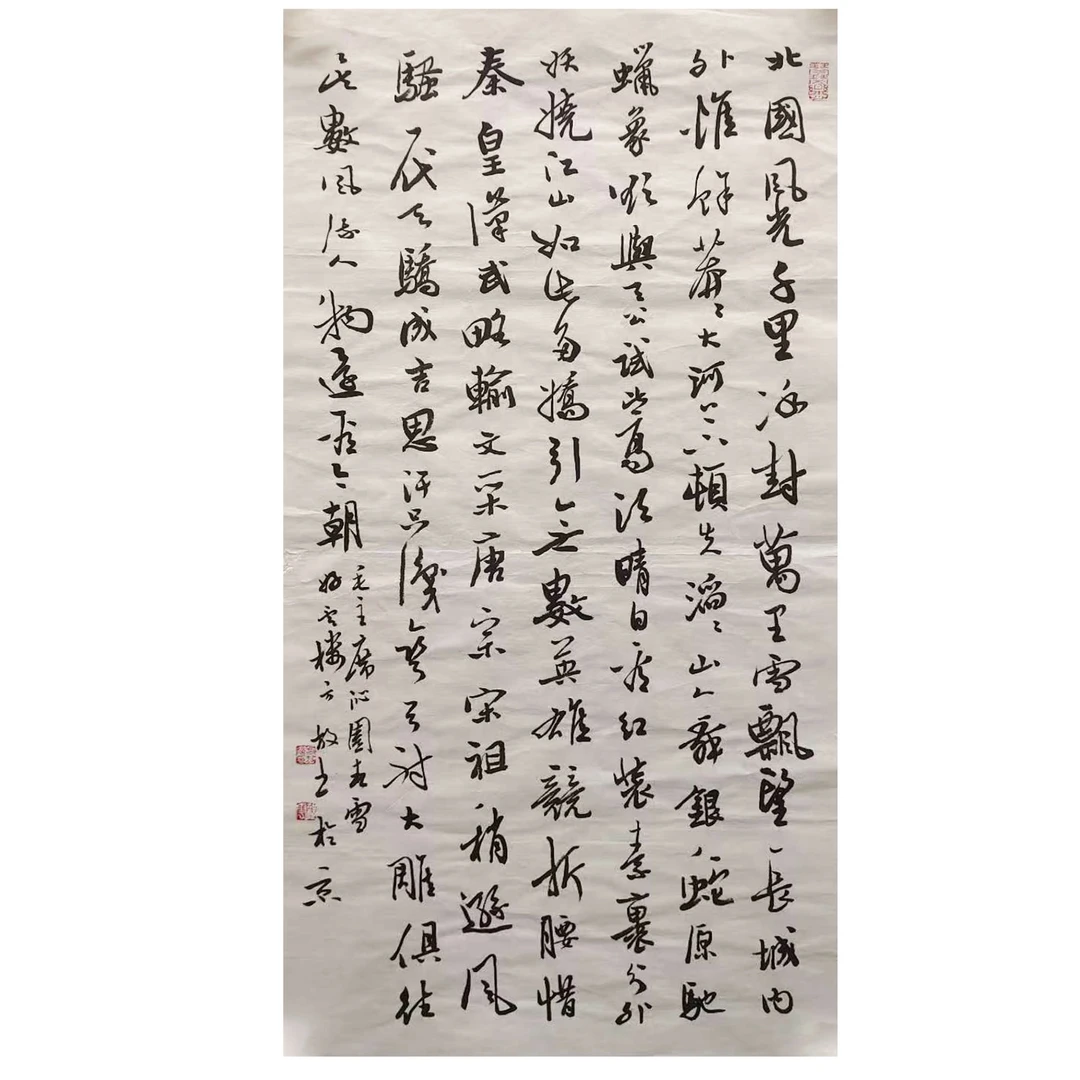 北國風光千里冰封萬里雪飄望長城內
外惟餘莽〻大河上下頓失滔〻山舞銀蛇原馳
蠟象欲與天公試比高須晴日看紅裝素裹分外
妖嬈江山如此多嬌引無數英雄競折腰惜
秦皇漢武略輸文采唐宗宋祖稍遜風
騷一代天驕成吉思汗只識彎弓射大雕俱往
矣數風流人物還看今朝
毛主席沁園春雪
樓書於京